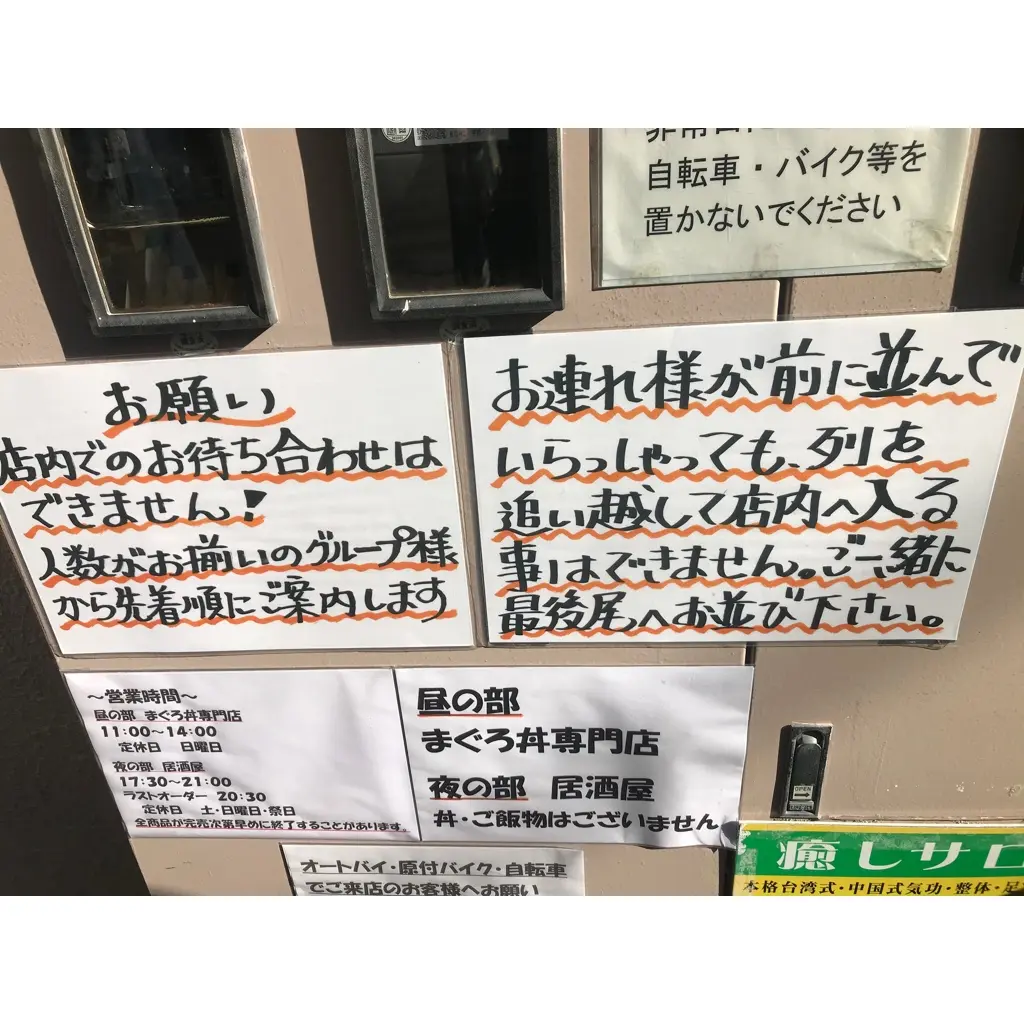 自転車・バイク等を
置かないでください
お願い
店内でのお待ち合わせは
できません!
人数がお揃いのグループ様
から先着順にご案内します
お連れ様が前に並んで
いらっしゃっても、列を
追い越して店内へ入る
事はできません。ご一緒に
最後尾へお並び下さい。
～営業時間～
昼の部 まぐろ丼専門店
11:00～14:00
定休日 日曜日
夜の部 居酒屋
17:30～21:00
ラストオーダー 20:30
定休日 土・日曜日・祭日
全商品が完売次第早めに終了することがあります。
昼の部
まぐろ丼専門店
夜の部 居酒屋
丼・ご飯物はございません
オートバイ・原付バイク・自転車
でご来店のお客様へお願い
OPEN
癒しサロ
本格台湾式・中国式気功・整体・足